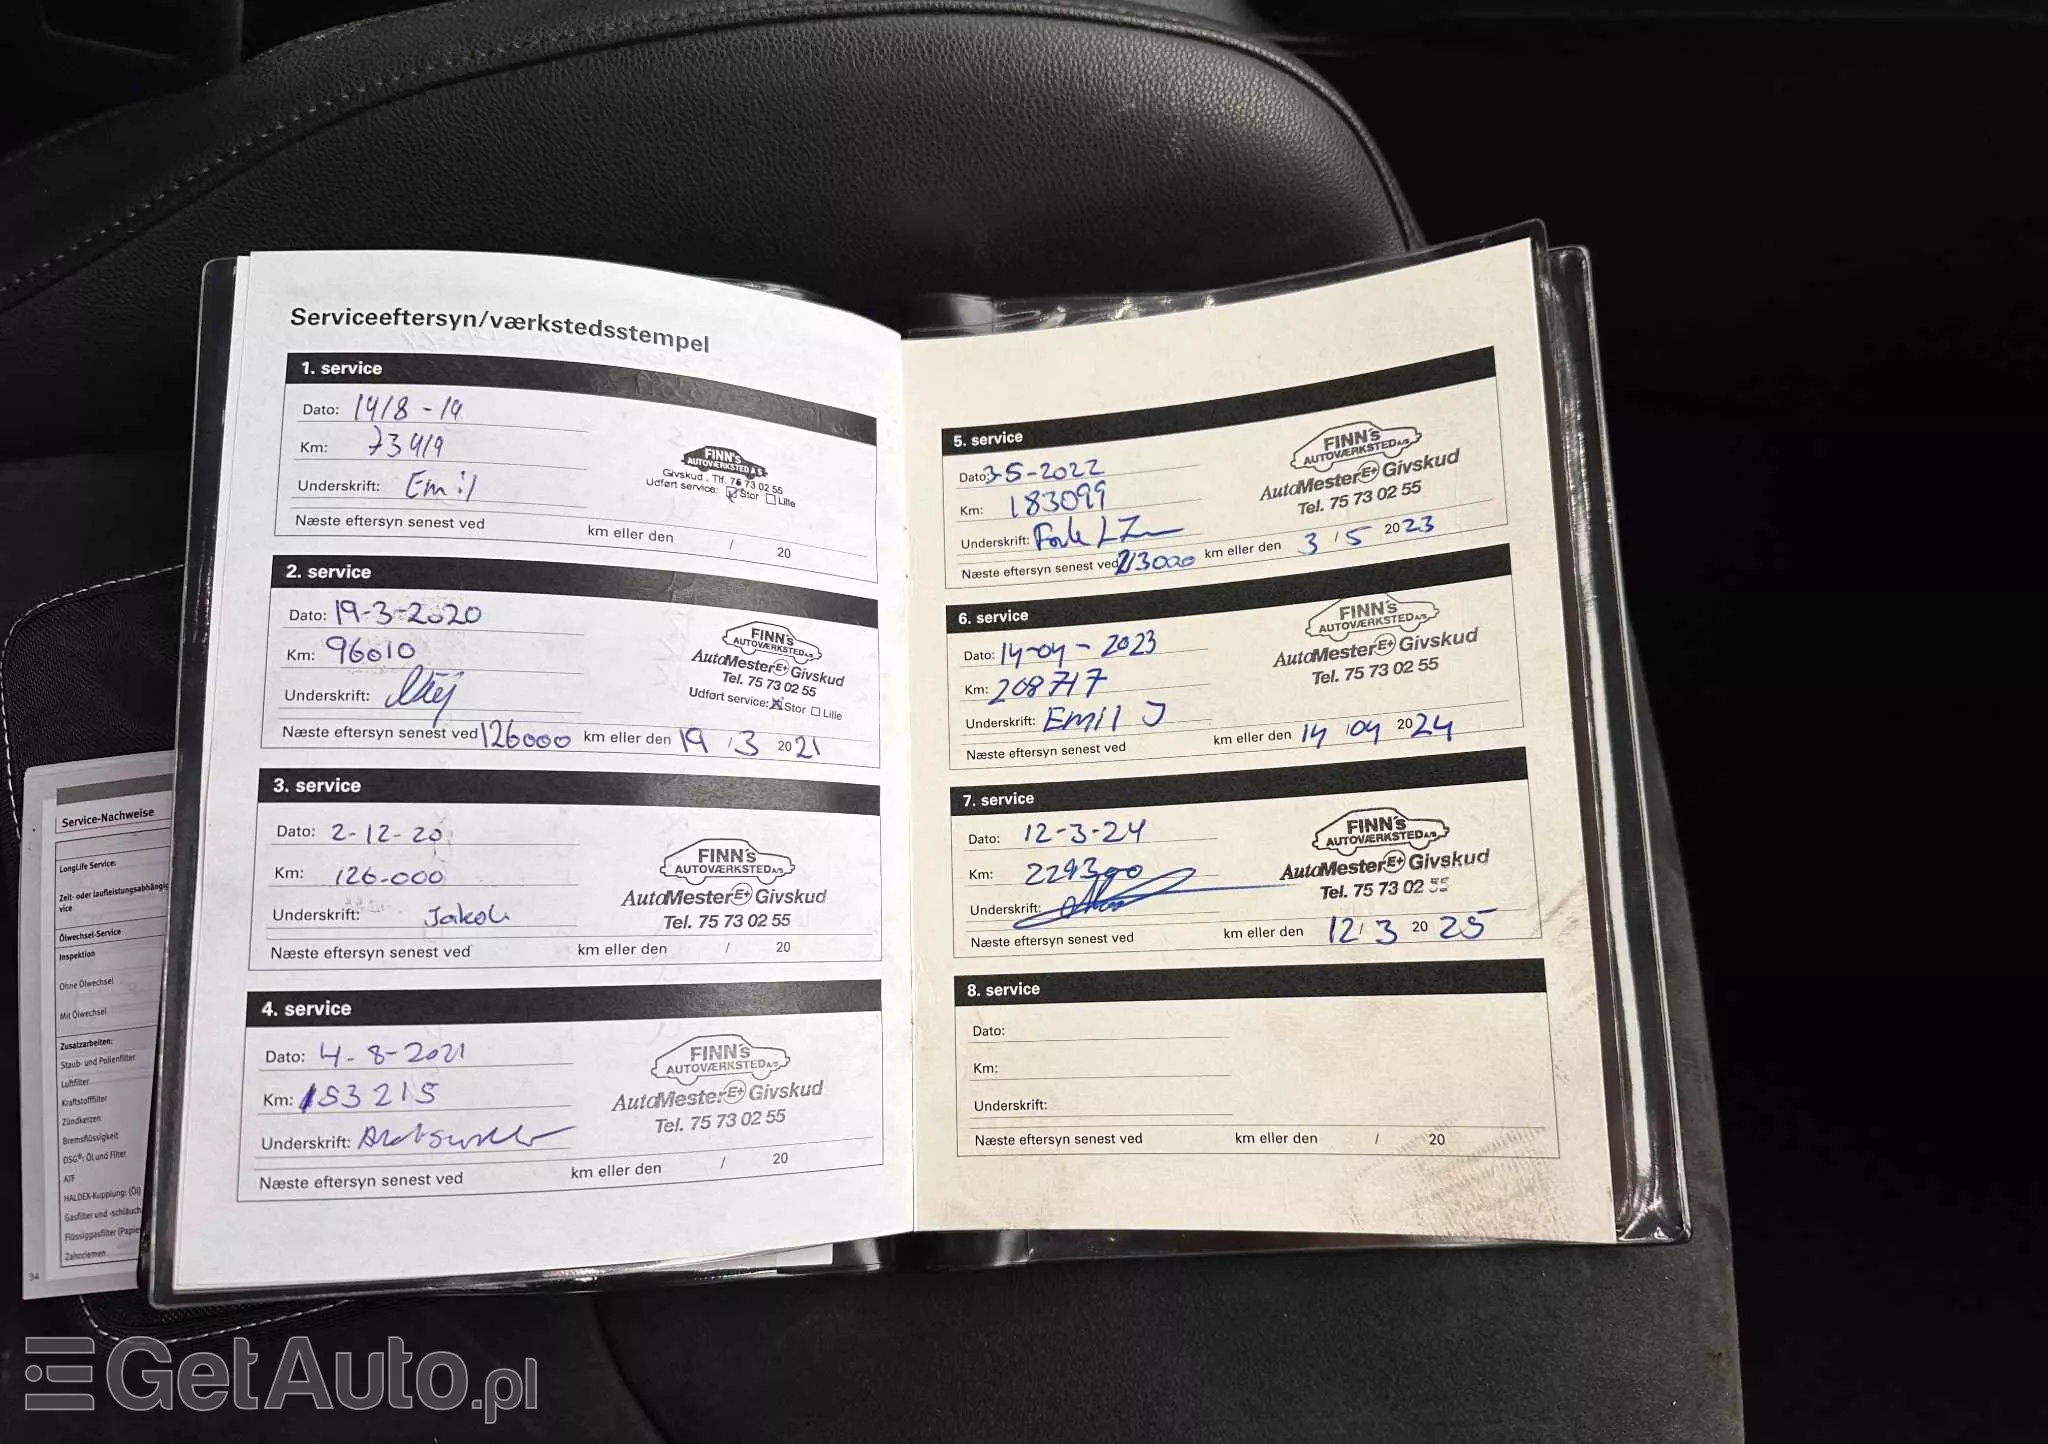 Serviceeftersyn/værkstedsstempel
1. service
Dato: 14/8-19
Km: 73419
Underskrift: Emil
Næste eftersyn senest ved km eller den / 20
FINN's
AUTOVÆRKSTED A.S.
Givskud . Tlf. 75 73 02 55
Udført service: Stor Lille
2. service
Dato: 19-3-2020
Km: 96010
Underskrift:
Næste eftersyn senest ved 126000 km eller den 19 / 3 2021
FINN's
AUTOVÆRKSTED A/S
AutoMester E+ Givskud
Tel. 75 73 02 55
Udført service: Stor Lille
3. service
Dato: 2-12-20
Km: 126.000
Underskrift: Jakob
Næste eftersyn senest ved km eller den / 20
FINN's
AUTOVÆRKSTED A/S
AutoMester E+ Givskud
Tel. 75 73 02 55
4. service
Dato: 4-8-2021
Km: 153215
Underskrift:
Næste eftersyn senest ved km eller den / 20
FINN's
AUTOVÆRKSTED A/S
AutoMester E+ Givskud
Tel. 75 73 02 55
5. service
Dato: 3-5-2022
Km: 183099
Underskrift:
Næste eftersyn senest ved 213000 km eller den 3 / 5 2023
FINN's
AUTOVÆRKSTED A/S
AutoMester E+ Givskud
Tel. 75 73 02 55
6. service
Dato: 14-04-2023
Km: 208717
Underskrift: Emil J
Næste eftersyn senest ved km eller den 14 / 04 2024
FINN's
AUTOVÆRKSTED A/S
AutoMester E+ Givskud
Tel. 75 73 02 55
7. service
Dato: 12-3-24
Km:
Underskrift:
Næste eftersyn senest ved km eller den 12 / 3 2025
FINN's
AUTOVÆRKSTED A/S
AutoMester E+ Givskud
Tel. 75 73 02 55
8. service
Dato:
Km:
Underskrift:
Næste eftersyn senest ved km eller den / 20
Service-Nachweise
LongLife Service:
Zeit- oder laufleistungsabhängig
vice
Ölwechsel-Service
Inspektion
Ohne Ölwechsel
Mit Ölwechsel
Zusatzarbeiten:
Staub- und Pollenfilter
Luftfilter
Kraftstofffilter
Zündkerzen
Bremsflüssigkeit
DSG®: Öl und Filter
ATF
HALDEX-Kupplung: (Öl)
Gasfilter und -schläuch
Flüssiggasfilter (Papie
Zahnriemen
34
GetAuto.pl